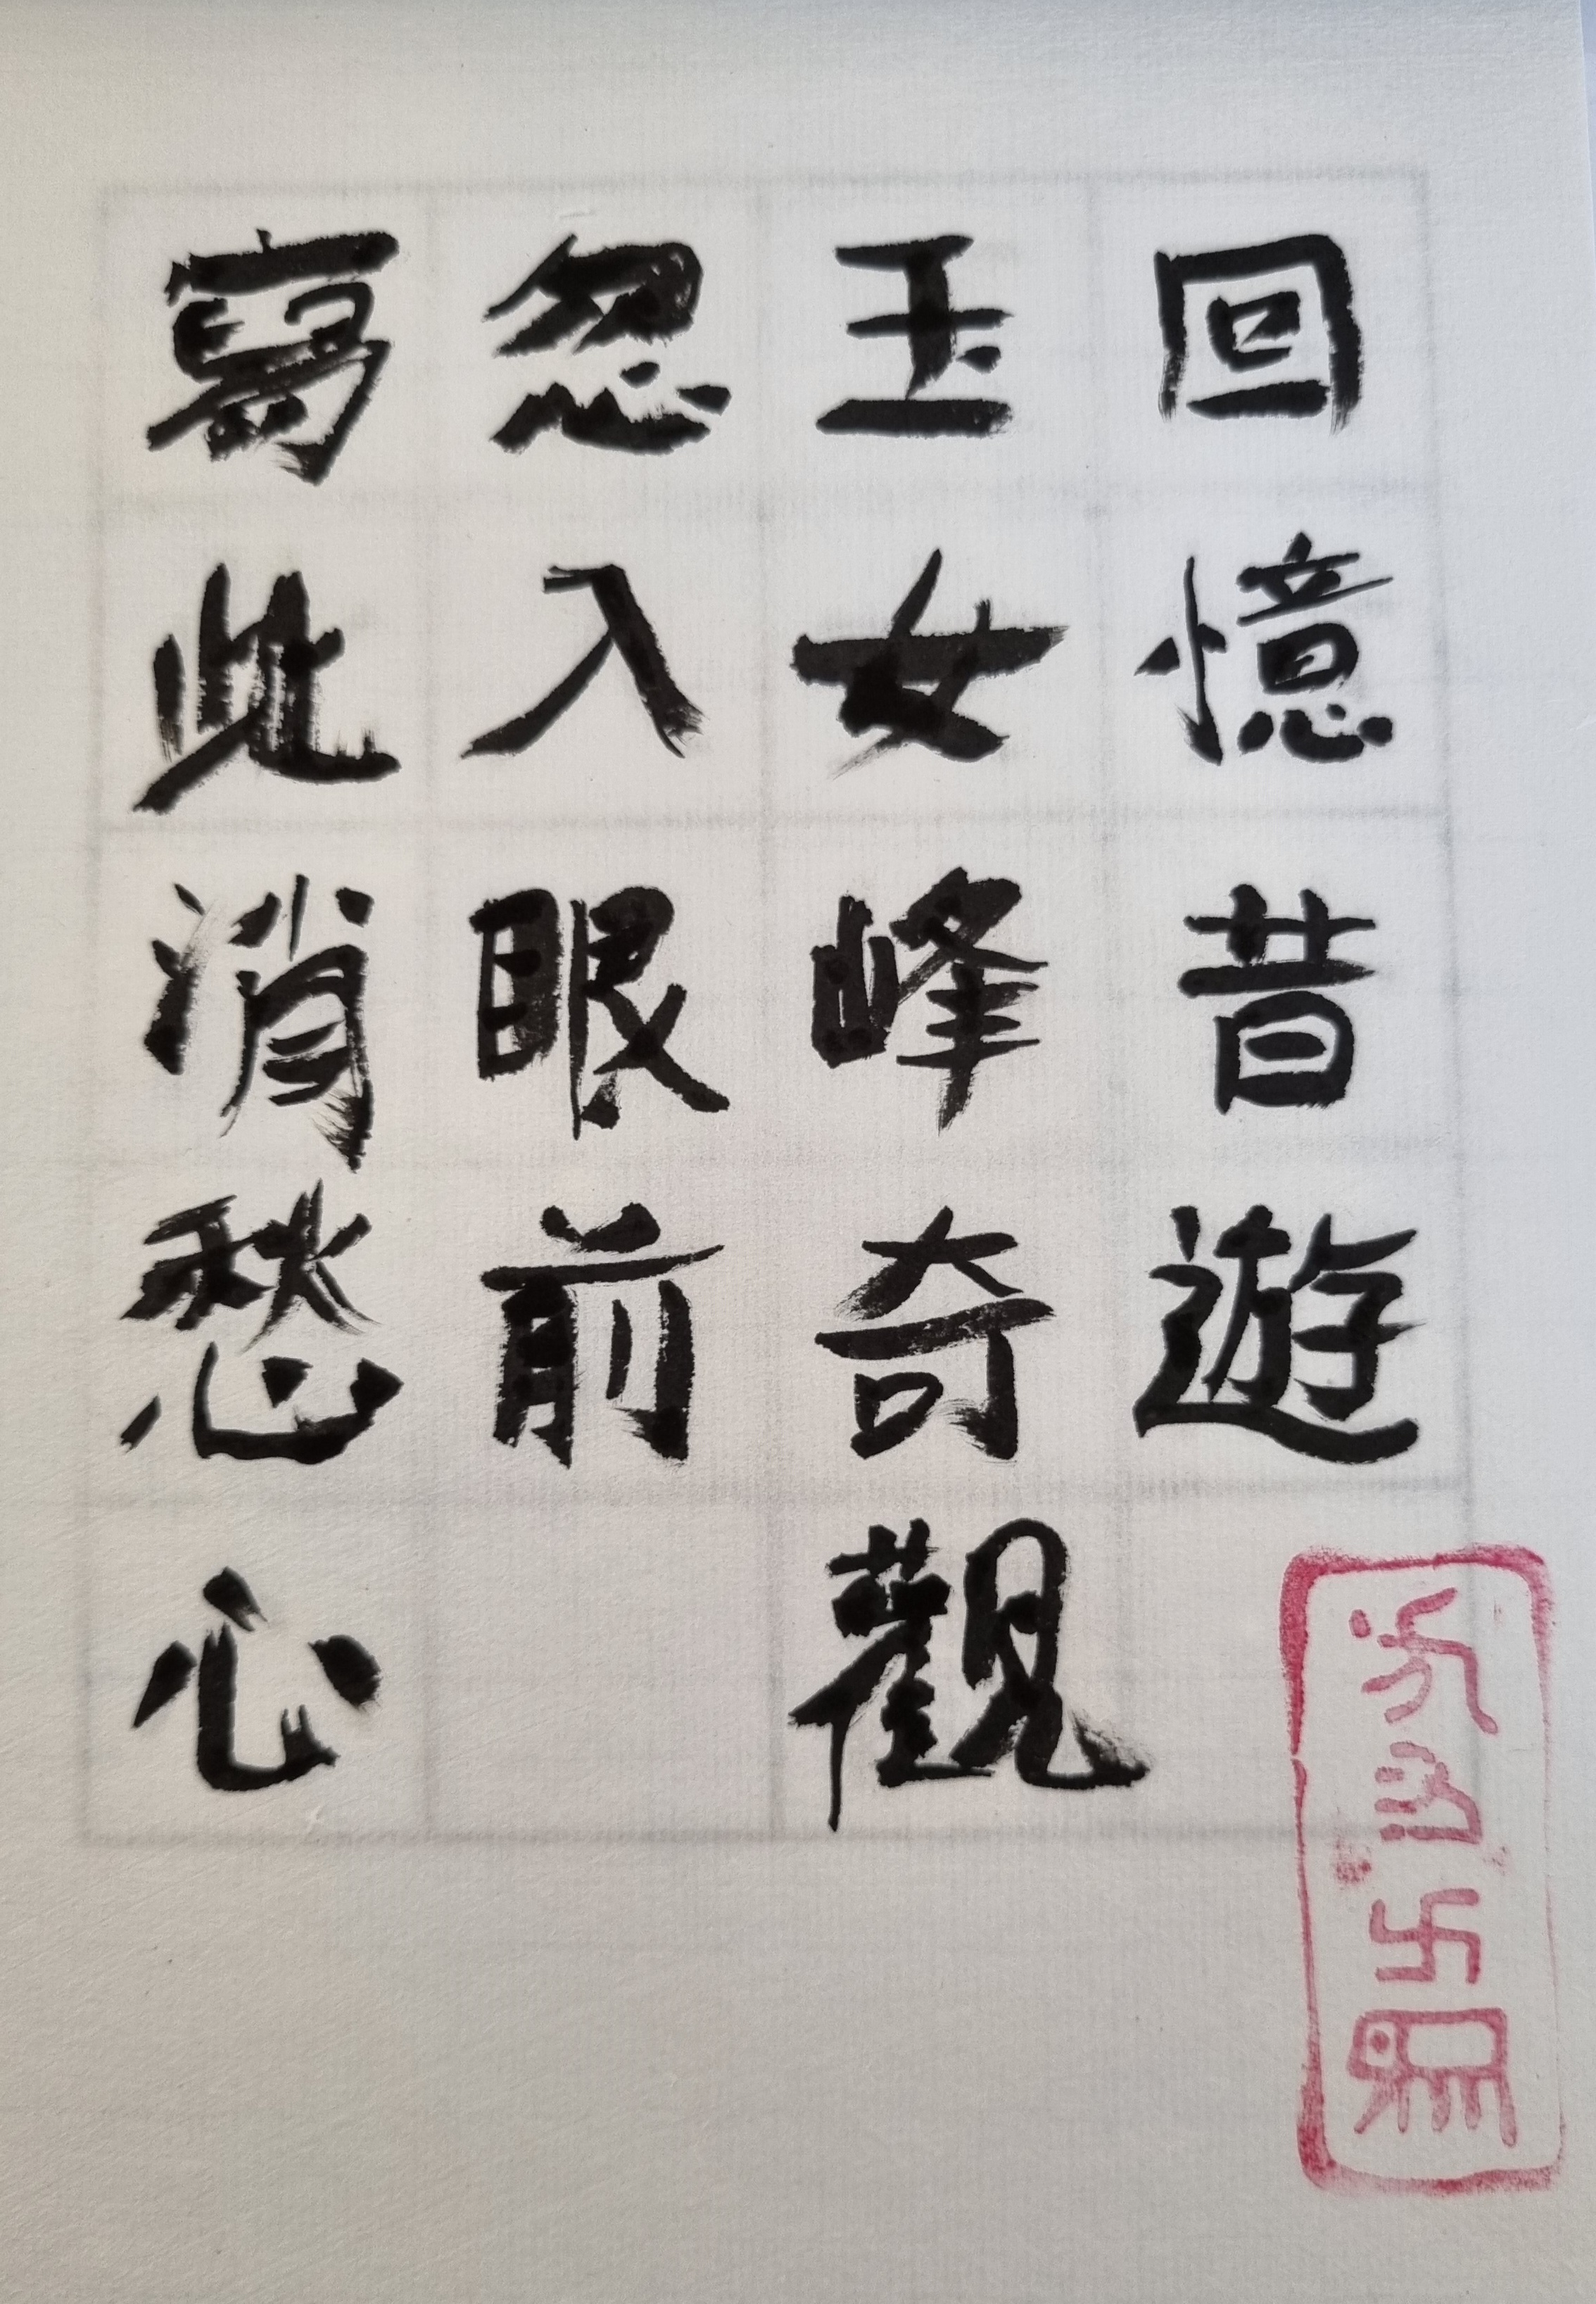 回憶昔遊
玉女峰奇觀
忽入眼前
寫此消愁心